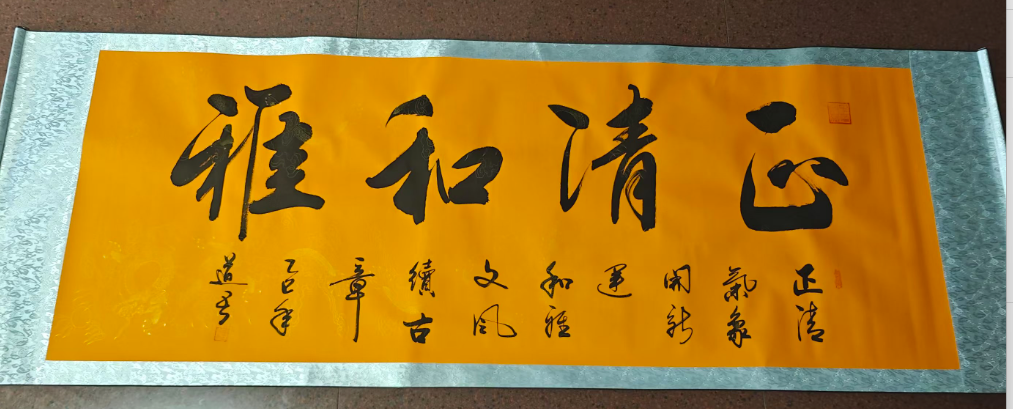 正清和雅
正清
氣象
開新
運
和雅
文风
續古
章
乙巳年
道